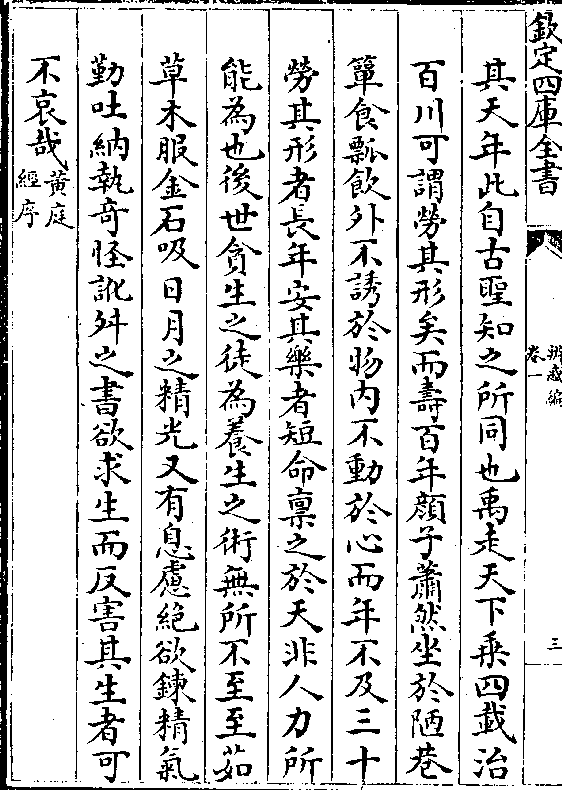 欽定四庫全書
辨惑編
卷一
三
其天年此自古聖知之所同也禹走天下乗四載治
百川可謂勞其形矣而壽百年顔子蕭然坐於陋巷
簞食瓢飲外不誘於物内不動於心而年不及三十
勞其形者長年安其樂者短命禀之於天非人力所
能為也後世貪生之徒為養生之術無所不至至茹
草木服金石吸日月之精光又有息慮絶欲鍊精氣
勤吐納執奇怪訛舛之書欲求生而反害其生者可
不哀哉黄庭
經序